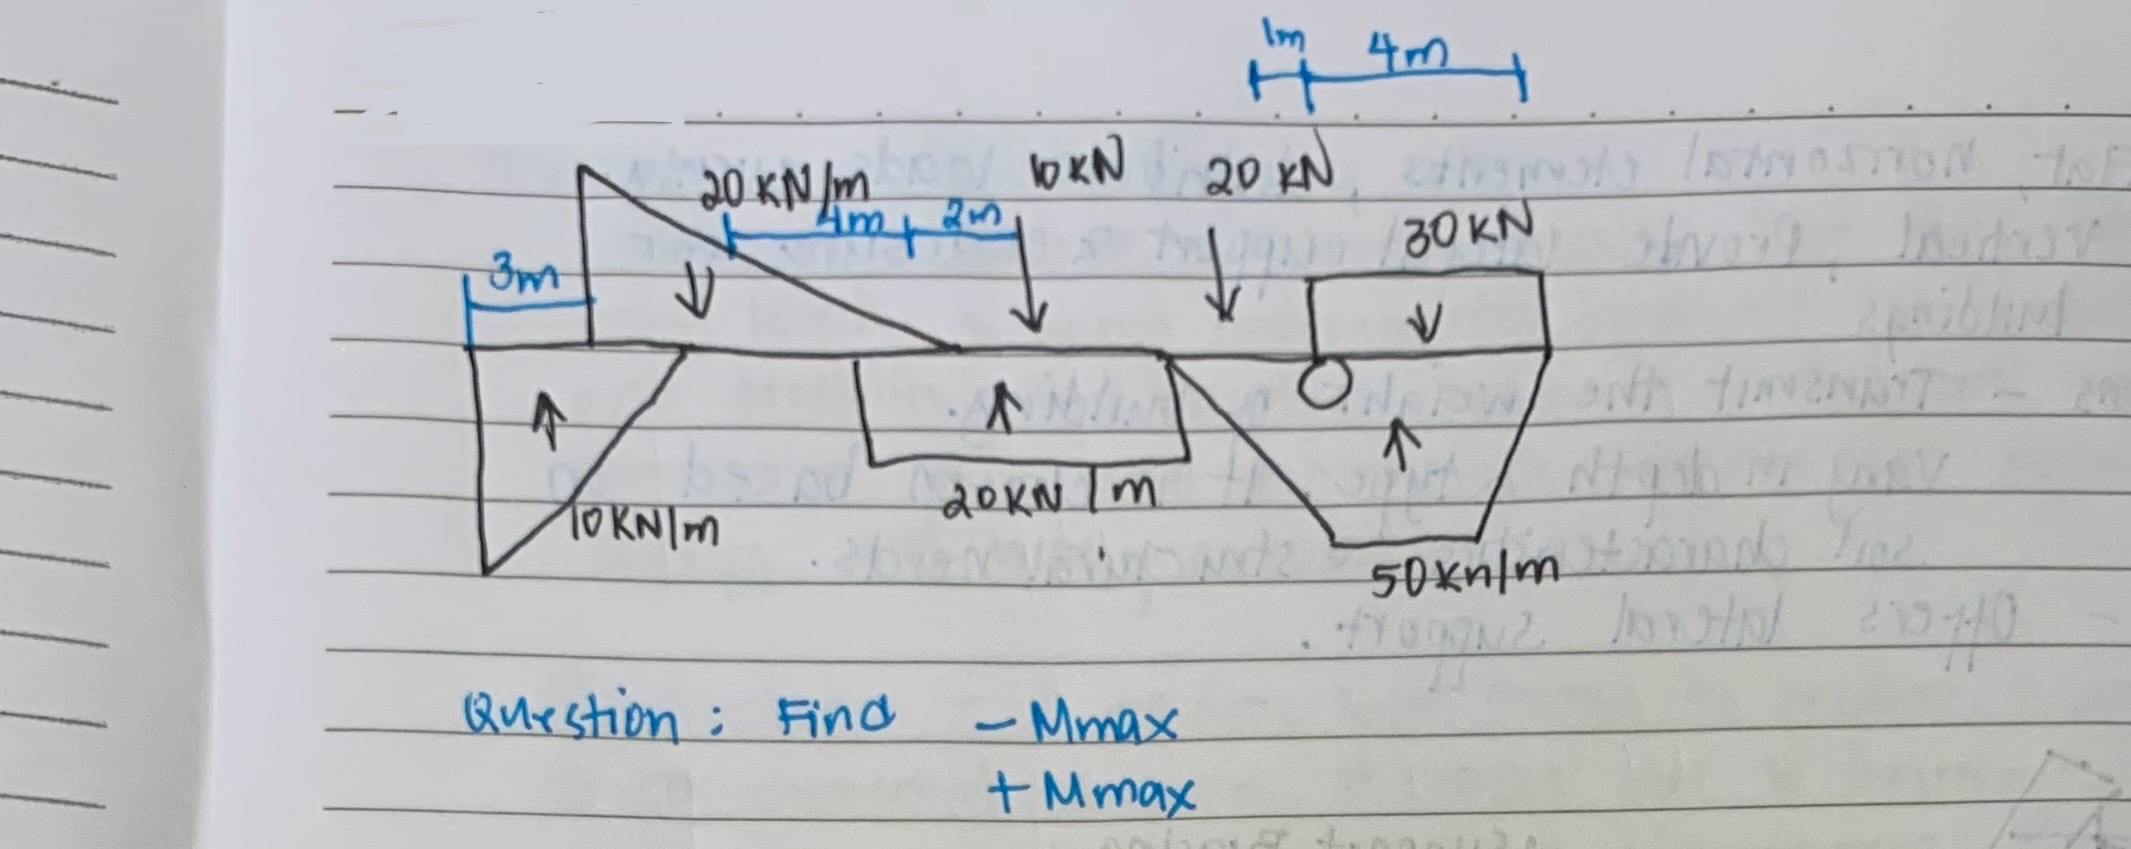 1m 4m
20 KN/m 10 KN 20 KN
4m 2m 30 KN
3m
10 KN/m 20 KN/m
50 Kn/m
Question : Find - Mmax
+ Mmax